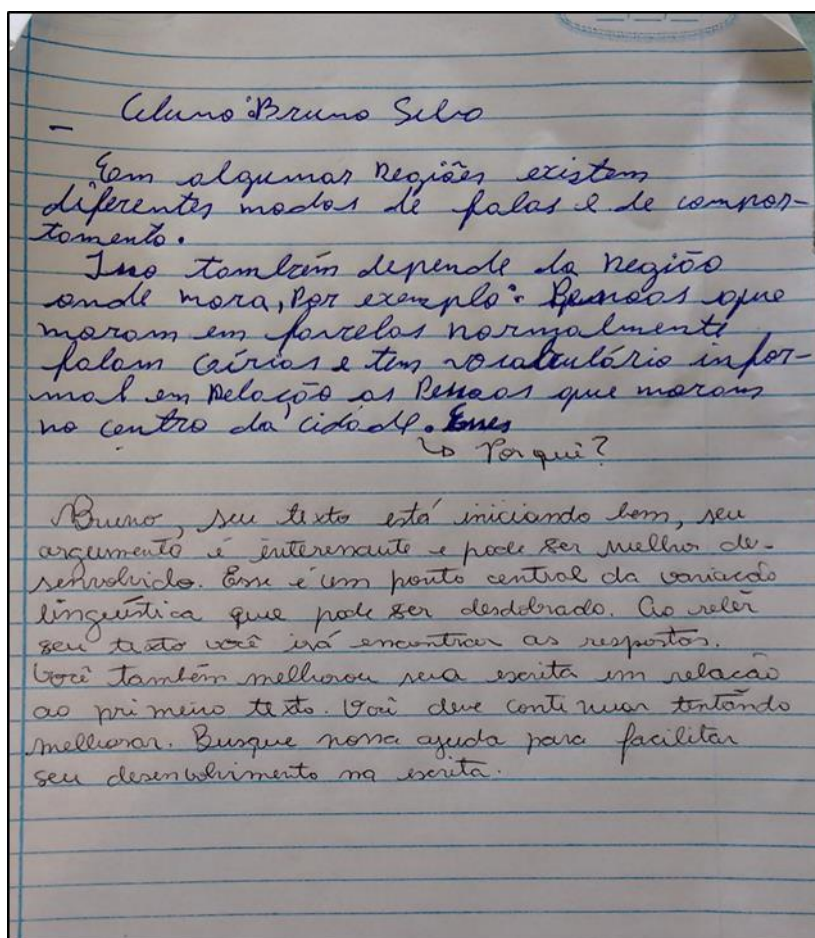 – Aluno: Bruno Silva
Em algumas Regiões existem
diferentes modos de falas e de compor-
tamento.
Isso também depende da Região
onde mora, Por exemplo: Pessoas que
moram em favelas normalmente
falam Gírias e tem vocabulário infor-
mal em Relação as Pessoas que moram
no centro da cidade. Esses
↳ Por quê?
Bruno, seu texto está iniciando bem, seu
argumento é interessante e pode ser melhor de-
senvolvido. Esse é um ponto central da variação
linguística que pode ser desdobrado. Ao reler
seu texto você irá encontrar as respostas.
Você também melhorou sua escrita em relação
ao primeiro texto. Você deve continuar tentando
melhorar. Busque nossa ajuda para facilitar
seu desenvolvimento na escrita.